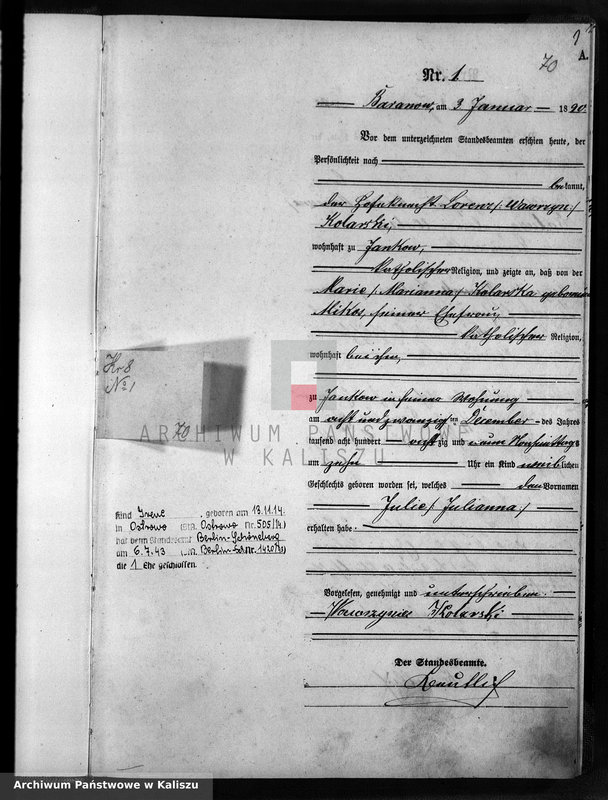 70
A.
Nr. 1
Baranow, am 3 Januar 1890.
Vor dem unterzeichneten Standesbeamten erschien heute, der
Persönlichkeit nach
bekannt,
der Hofeknecht Lorenz /: Wawrzyn :/
Kolarski,
wohnhaft zu Jankow,
katholischer Religion, und zeigte an, daß von der
Marie /: Marianna :/ Kolarska geborenen
Mikos, seiner Ehefrau,
katholischer Religion,
wohnhaft bei ihm,
zu Jankow in seiner Wohnung
am acht und zwanzigsten Dezember des Jahres
tausend acht hundert achtzig und neun Vormittags
um zehn Uhr ein Kind weiblichen
Geschlechts geboren worden sei, welches den Vornamen
Julie /: Julianna :/
erhalten habe.
Vorgelesen, genehmigt und unterschrieben.
Wawrzyn Kolarski
Der Standesbeamte.
Kr 8
No 1
70
Kind Irene, geboren am 13.11.14.
in Ostrowo (StA. Ostrowo nr. 505/14)
hat beim Standesamt Berlin-Schöneberg
am 6.7.43 Berlin-Sch nr. 1420
die 1 Ehe geschlossen.
ARCHIWUM PAŃSTWOWE
W KALISZU
Archiwum Państwowe w Kaliszu